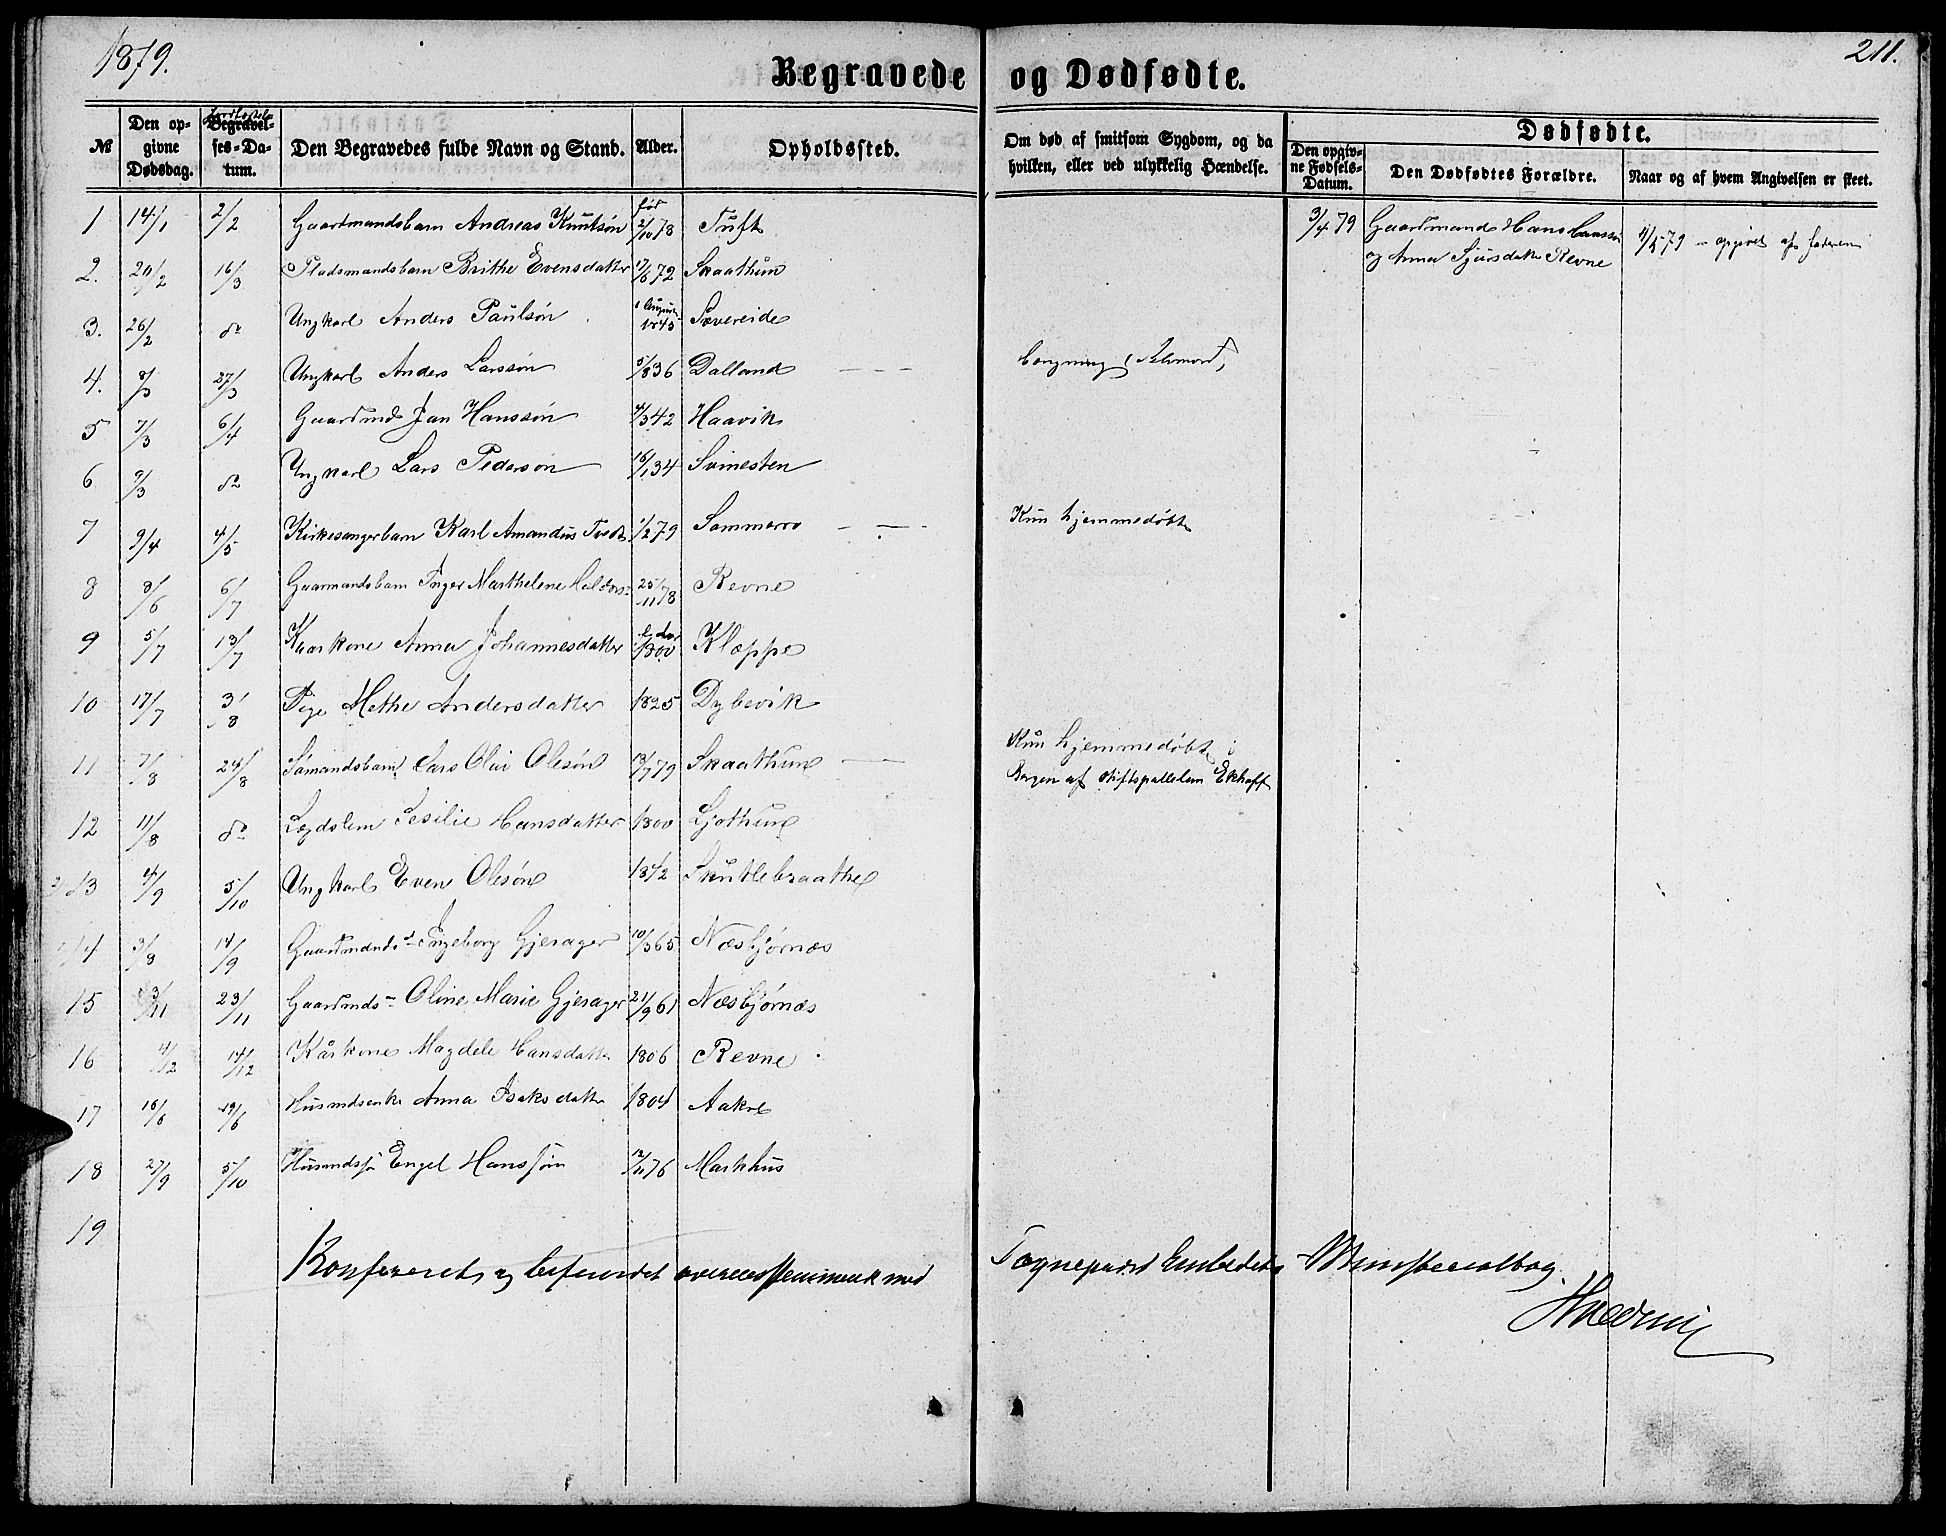 1879.
211.
Begravede og Dødfødte.
№
Den op-
givne
Dødsdag.
Begravel-
ses-Da-
tum.
Den Begravedes fulde Navn og Stand.
Alder.
Opholdssted.
Om død af smitsom Sygdom, og da
hvilken, eller ved ulykkelig Hændelse.
Dødfødte.
Den opgiv-
ne Fødsels-
Datum.
Den Dødfødtes Forældre.
Naar og af hvem Angivelsen er skeet.
1 14/1 2/2 Gaardmandsbarn Andreas Knutsøn fød 2/10 78 Tuft
3/4 79 Gaardmand Hans Hanssøn
og Anna Sjursdatter Revne
11/5 79 opgivet af faderen
2. 20/2 16/3 Pladsmandsbarn Brithe Evensdatter 17/6 72 Skaathun
3. 26/2 do Ungkarl Anders Paulsøn 1845 Sævereide
4. 8/3 27/3 Ungkarl Anders Larssøn 5/8 36 Dalland
Selvmord
5 7/3 6/4 Gaardmd Jan Hanssøn 4/3 42 Haavik
6 9/3 do Ungkarl Lars Pedersøn 16/1 34 Svinesten
7 9/4 4/5 Kirkesangerbarn Karl Amandus Tvedt 1/2 79 Sommerro
Kun hjemmedøbt
8 8/6 6/7 Gaarmandsbarn Inger Marthelene Haldors 25/11 78 Revne
9 5/7 13/7 Kaarkone Anna Johannesdatter 1800 Kleppe
10 17/7 3/8 Pige Methe Andersdatter 1825 Dybevik
11 7/8 24/8 Sømandsbarn Lars Olai Olesøn 13/7 79 Skaathun
Kun hjemmedøbt i
Bergen af stiftspallelan Ekhoff
12 11/8 do Lægdslem Sesilie Hansdatter 1800 Ljothun
13 4/9 5/10 Ungkarl Even Olesøn 1842 Skutlebraathe
14 3/8 14/9 Gaardmands Ingeborg Gjerager 10/3 65 Næsbjørnæs
15 13/11 23/11 Gaardmds Oline Marie Gjerager 21/9 61 Næsbjørnæs
16 4/12 14/12 Kårkone Magdele Hansdatter 1806 Revne
17 10/6 19/6 Husmdsenke Anna Isaksdatter 1804 Aakre
18 27/9 5/10 Husmds Engel Hanssøn 12/11 76 Markhus
19
Konfereret og befundet overensstemmende med Sognepræst Embedets Ministerialbog.